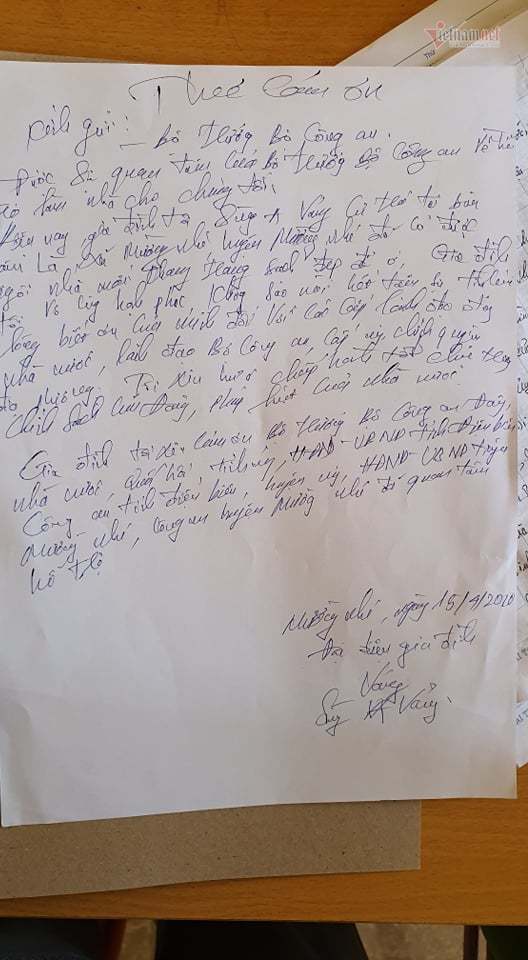 Vietnamnet
Thư Cám ơn
Kính gửi: - Bộ trưởng Bộ Công an.
Được Sự quan tâm của Bộ trưởng Bộ Công an về
làm nhà cho chúng tôi,
Hiện nay, gia đình tôi Sùng A Váng Cư trú tại bản
xã Mường Nhé huyện Mường Nhé đã có được
ngôi nhà mới khang trang sạch đẹp để ở. Gia đình
tôi Vô cùng hạnh phúc không sao nói hết
lòng biết ơn của mình đối Với các Cấp lãnh đạo đảng
nhà nước, lãnh đạo Bộ Công an, Cấp ủy, chính quyền
địa phương. Tôi xin hứa chấp hành tốt chủ trương
Chính Sách của Đảng, pháp luật của nhà nước.
Gia đình tôi xin cám ơn Bộ trưởng Bộ Công an Đảng,
nhà nước, Quốc hội, tỉnh ủy, HĐND-UBND tỉnh Điện biên
Công an tỉnh điện biên, huyện ủy, HĐND-UBND huyện
Mường nhé, Công an huyện Mường nhé đã quan tâm
hỗ trợ
Mường Nhé, ngày 15/4/2020
Đại diện gia đình
Váng
Sùng A Váng